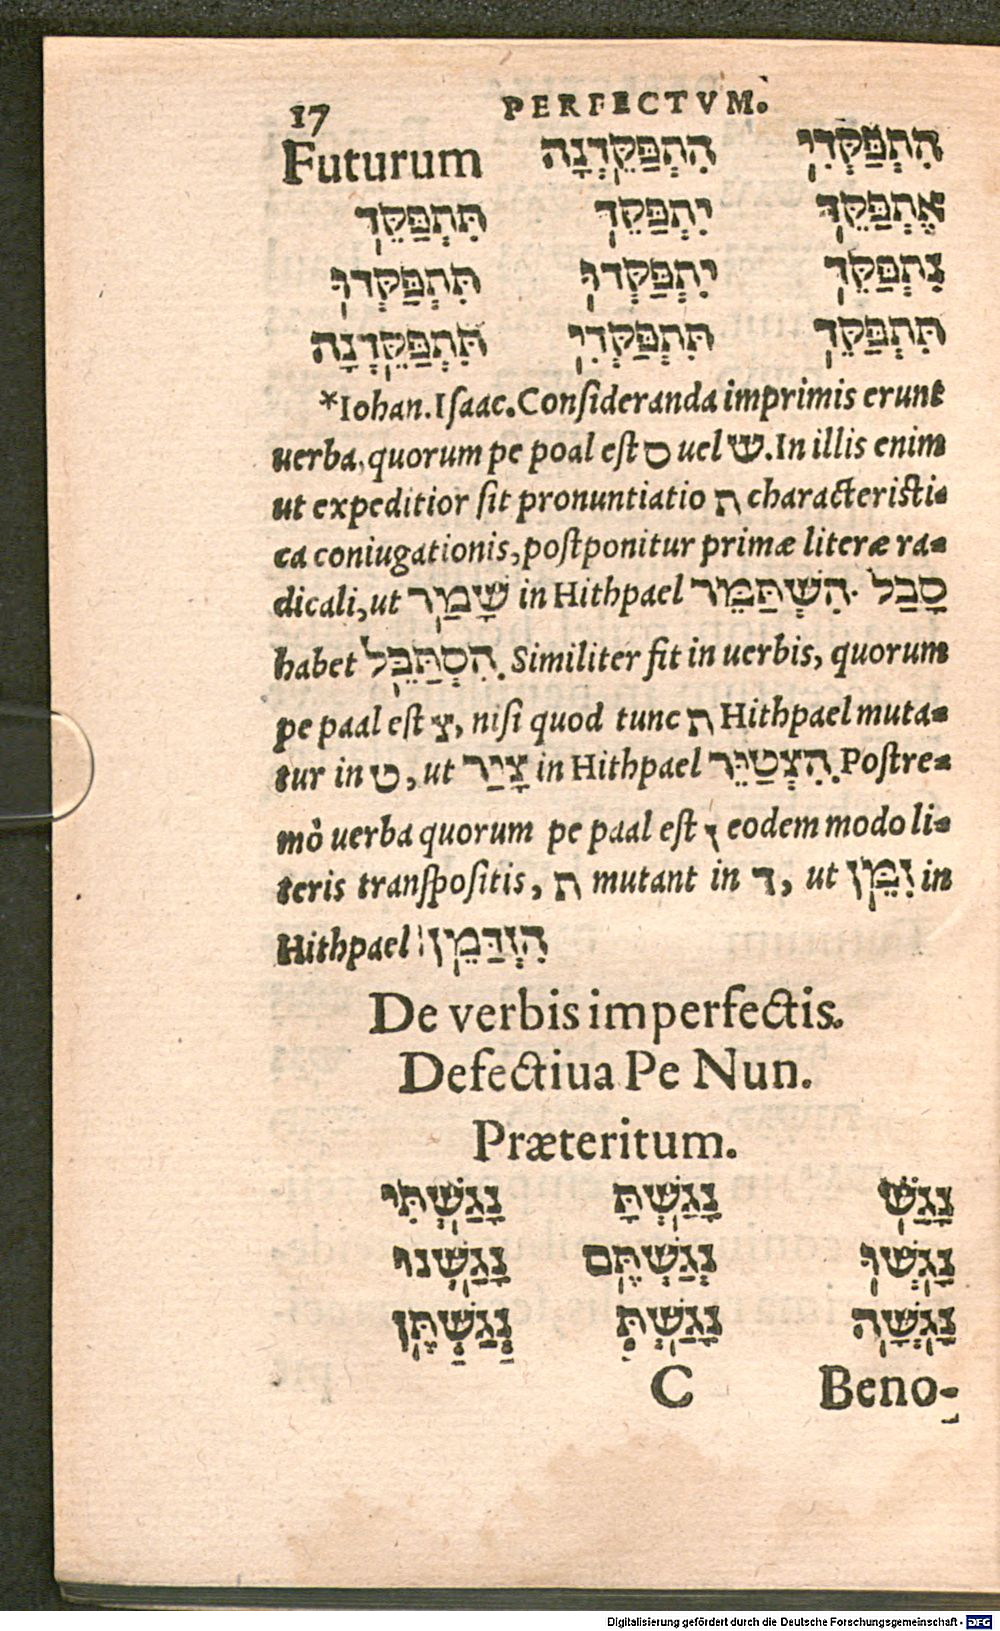 17 PERFECTVM.
Futurum הִתְפַּקֵּדְנָה הִתְפַּקְּדִי
אֶתְפַּקֵּד יִתְפַּקֵּד תִּתְפַּקֵּד
נִתְפַּקֵּד יִתְפַּקְּדוּ תִּתְפַּקְּדוּ
תִּתְפַּקֵּד תִּתְפַּקְּדִי תִּתְפַּקֵּדְנָה
*Iohan.Iſaac.Conſideranda imprimis erunt
uerba, quorum pe poal eſt ס uel ש. In illis enim
ut expeditior ſit pronuntiatio ת characteriſti-
ca coniugationis, poſtponitur primæ literæ ra-
dicali, ut שָׁמַר in Hithpael הִשְׁתַּמֵּר. סָבַל
habet הִסְתַּבֵּל. Similiter fit in uerbis, quorum
pe paal eſt צ, niſi quod tunc ת Hithpael muta-
tur in ט, ut צָיַר in Hithpael הִצְטַיֵּר. Poſtre-
mò uerba quorum pe paal eſt ז eodem modo li-
teris tranſpoſitis, ת mutant in ד, ut זִמֵּן in
Hithpael הִזְדַּמֵּן:
De verbis imperfectis.
Defectiua Pe Nun.
Præteritum.
נָגַשׁ נָגַשְׁתָּ נָגַשְׁתִּי
נָגְשׁוּ נְגַשְׁתֶּם נָגַשְׁנוּ
נָגְשָׁה נָגַשְׁתְּ נְגַשְׁתֶּן
C Beno-
Digitalisierung gefördert durch die Deutsche Forschungsgemeinschaft - DFG